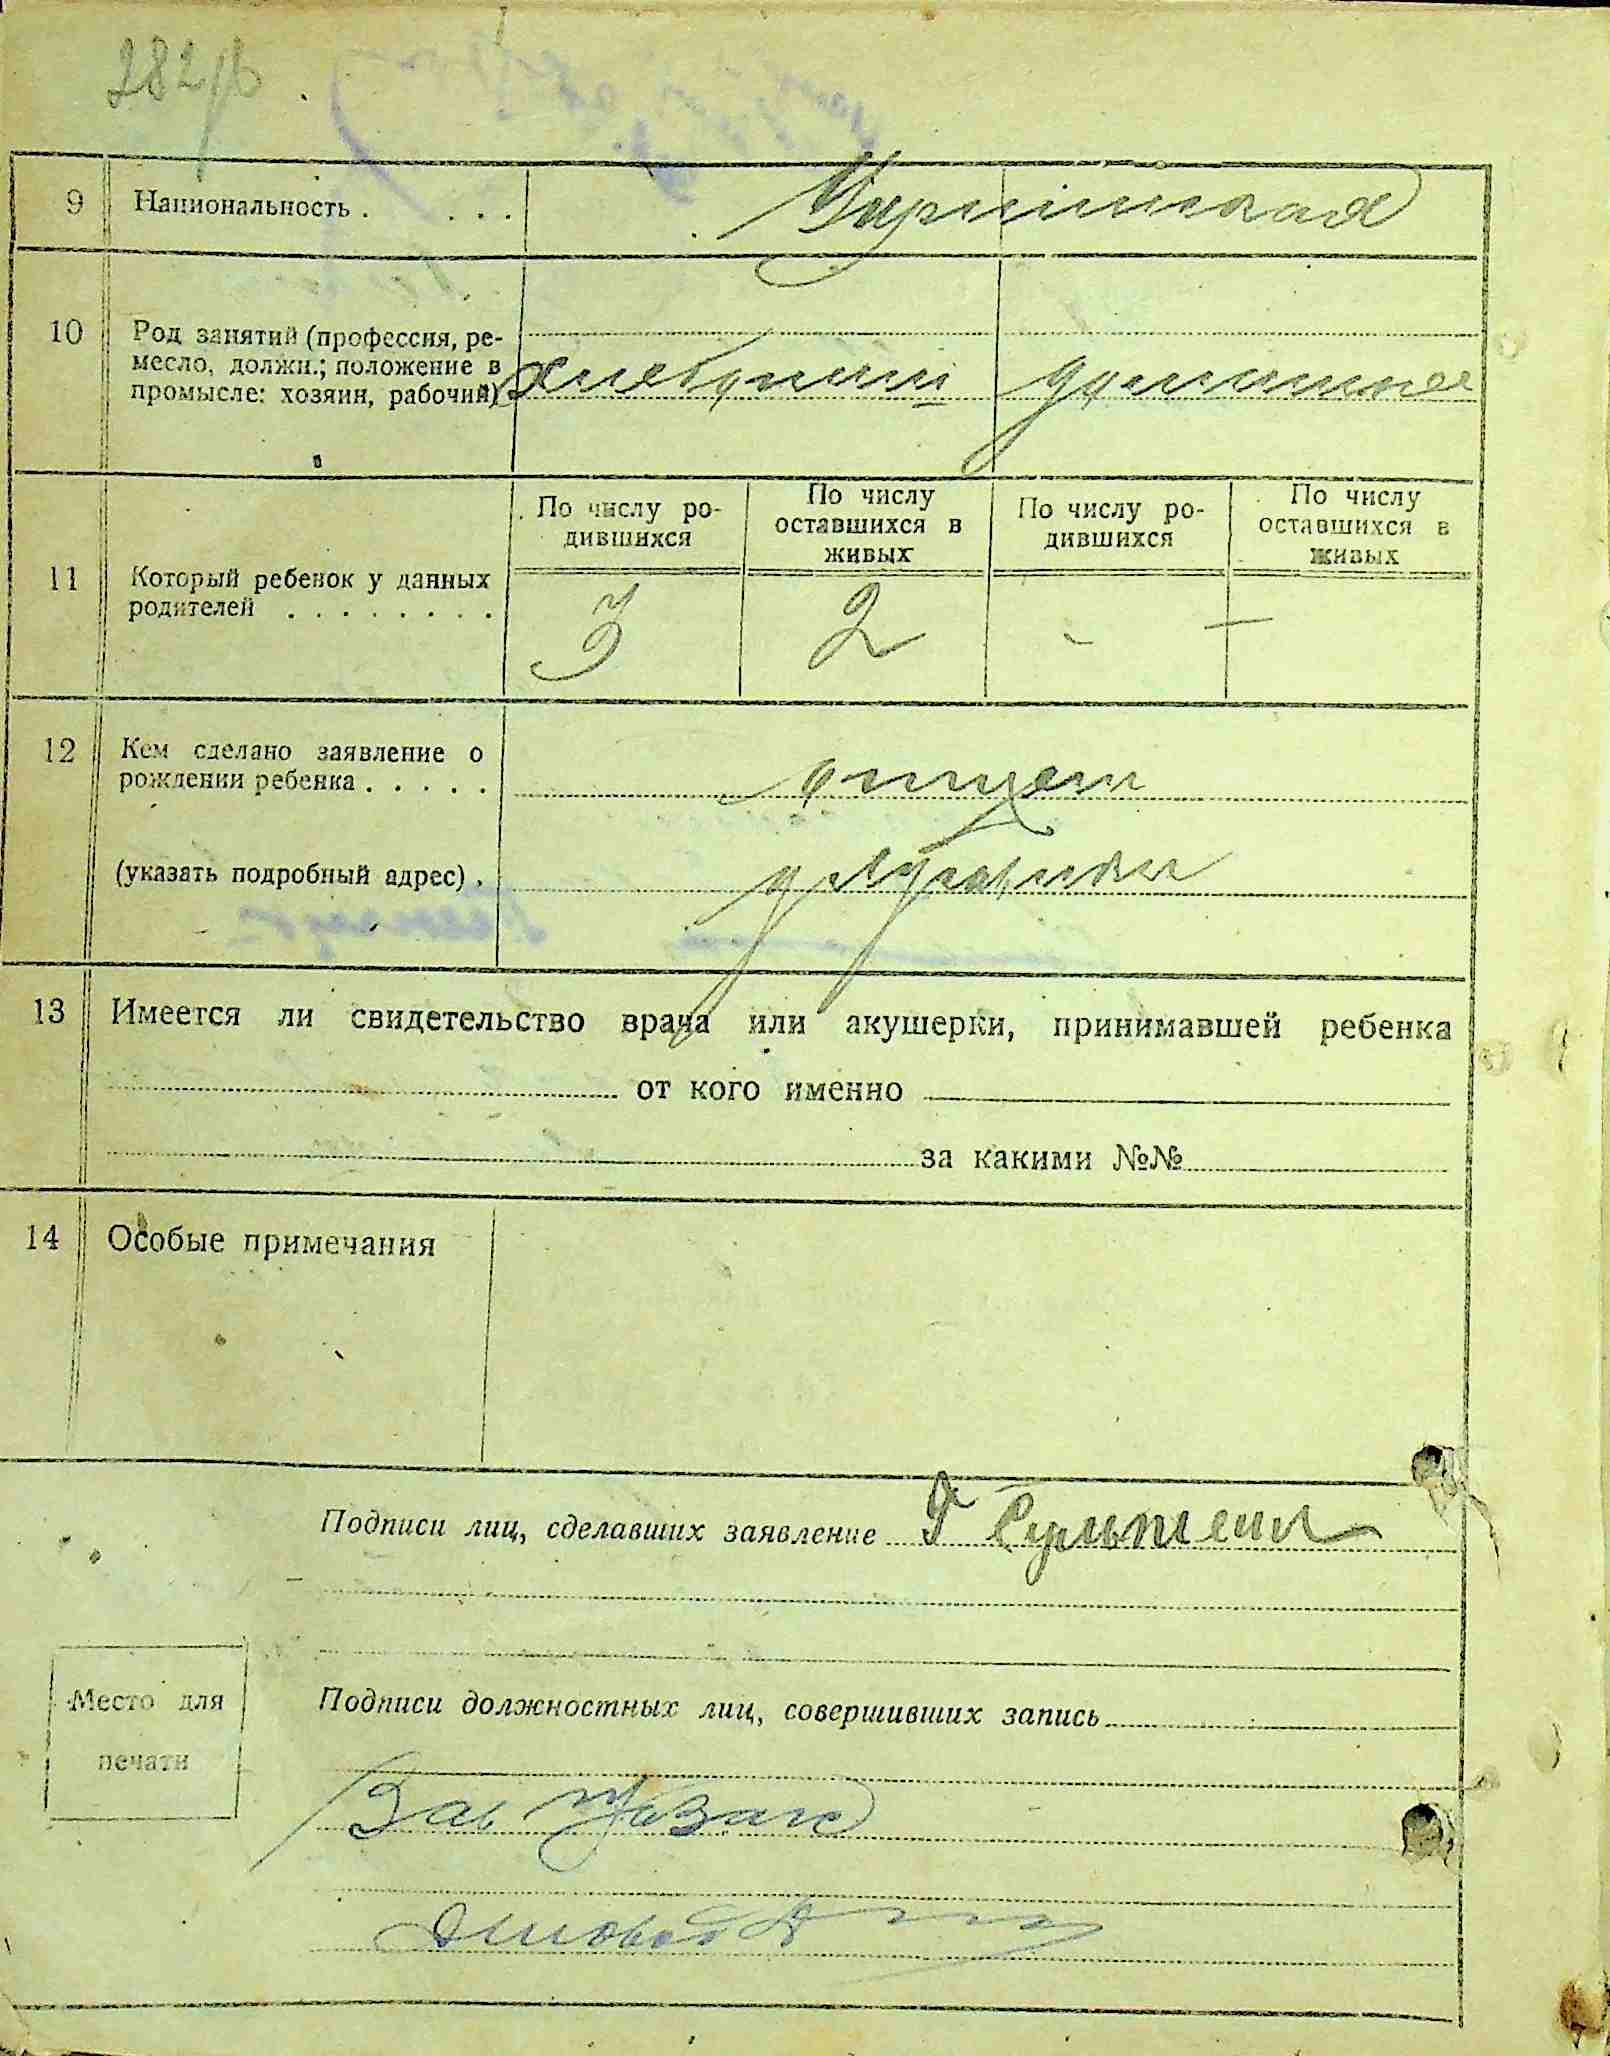 282об
9 Национальность . . . . Украинская
10 Род занятий (профессия, ре-
месло, должн.; положение в
промысле: хозяин, рабочий) домашнее
По числу ро-
дившихся
По числу
оставшихся в
живых
По числу ро-
дившихся
По числу
оставшихся в
живых
11 Который ребенок у данных
родителей . . . . . . . .
3 2 - -
12 Кем сделано заявление о
рождении ребенка . . . . . отцем
(указать подробный адрес) .
13 Имеется ли свидетельство врача или акушерки, принимавшей ребенка
от кого именно
за какими №№
14 Особые примечания
Подписи лиц, сделавших заявление
Место для
печати
Подписи должностных лиц, совершивших запись
Зав